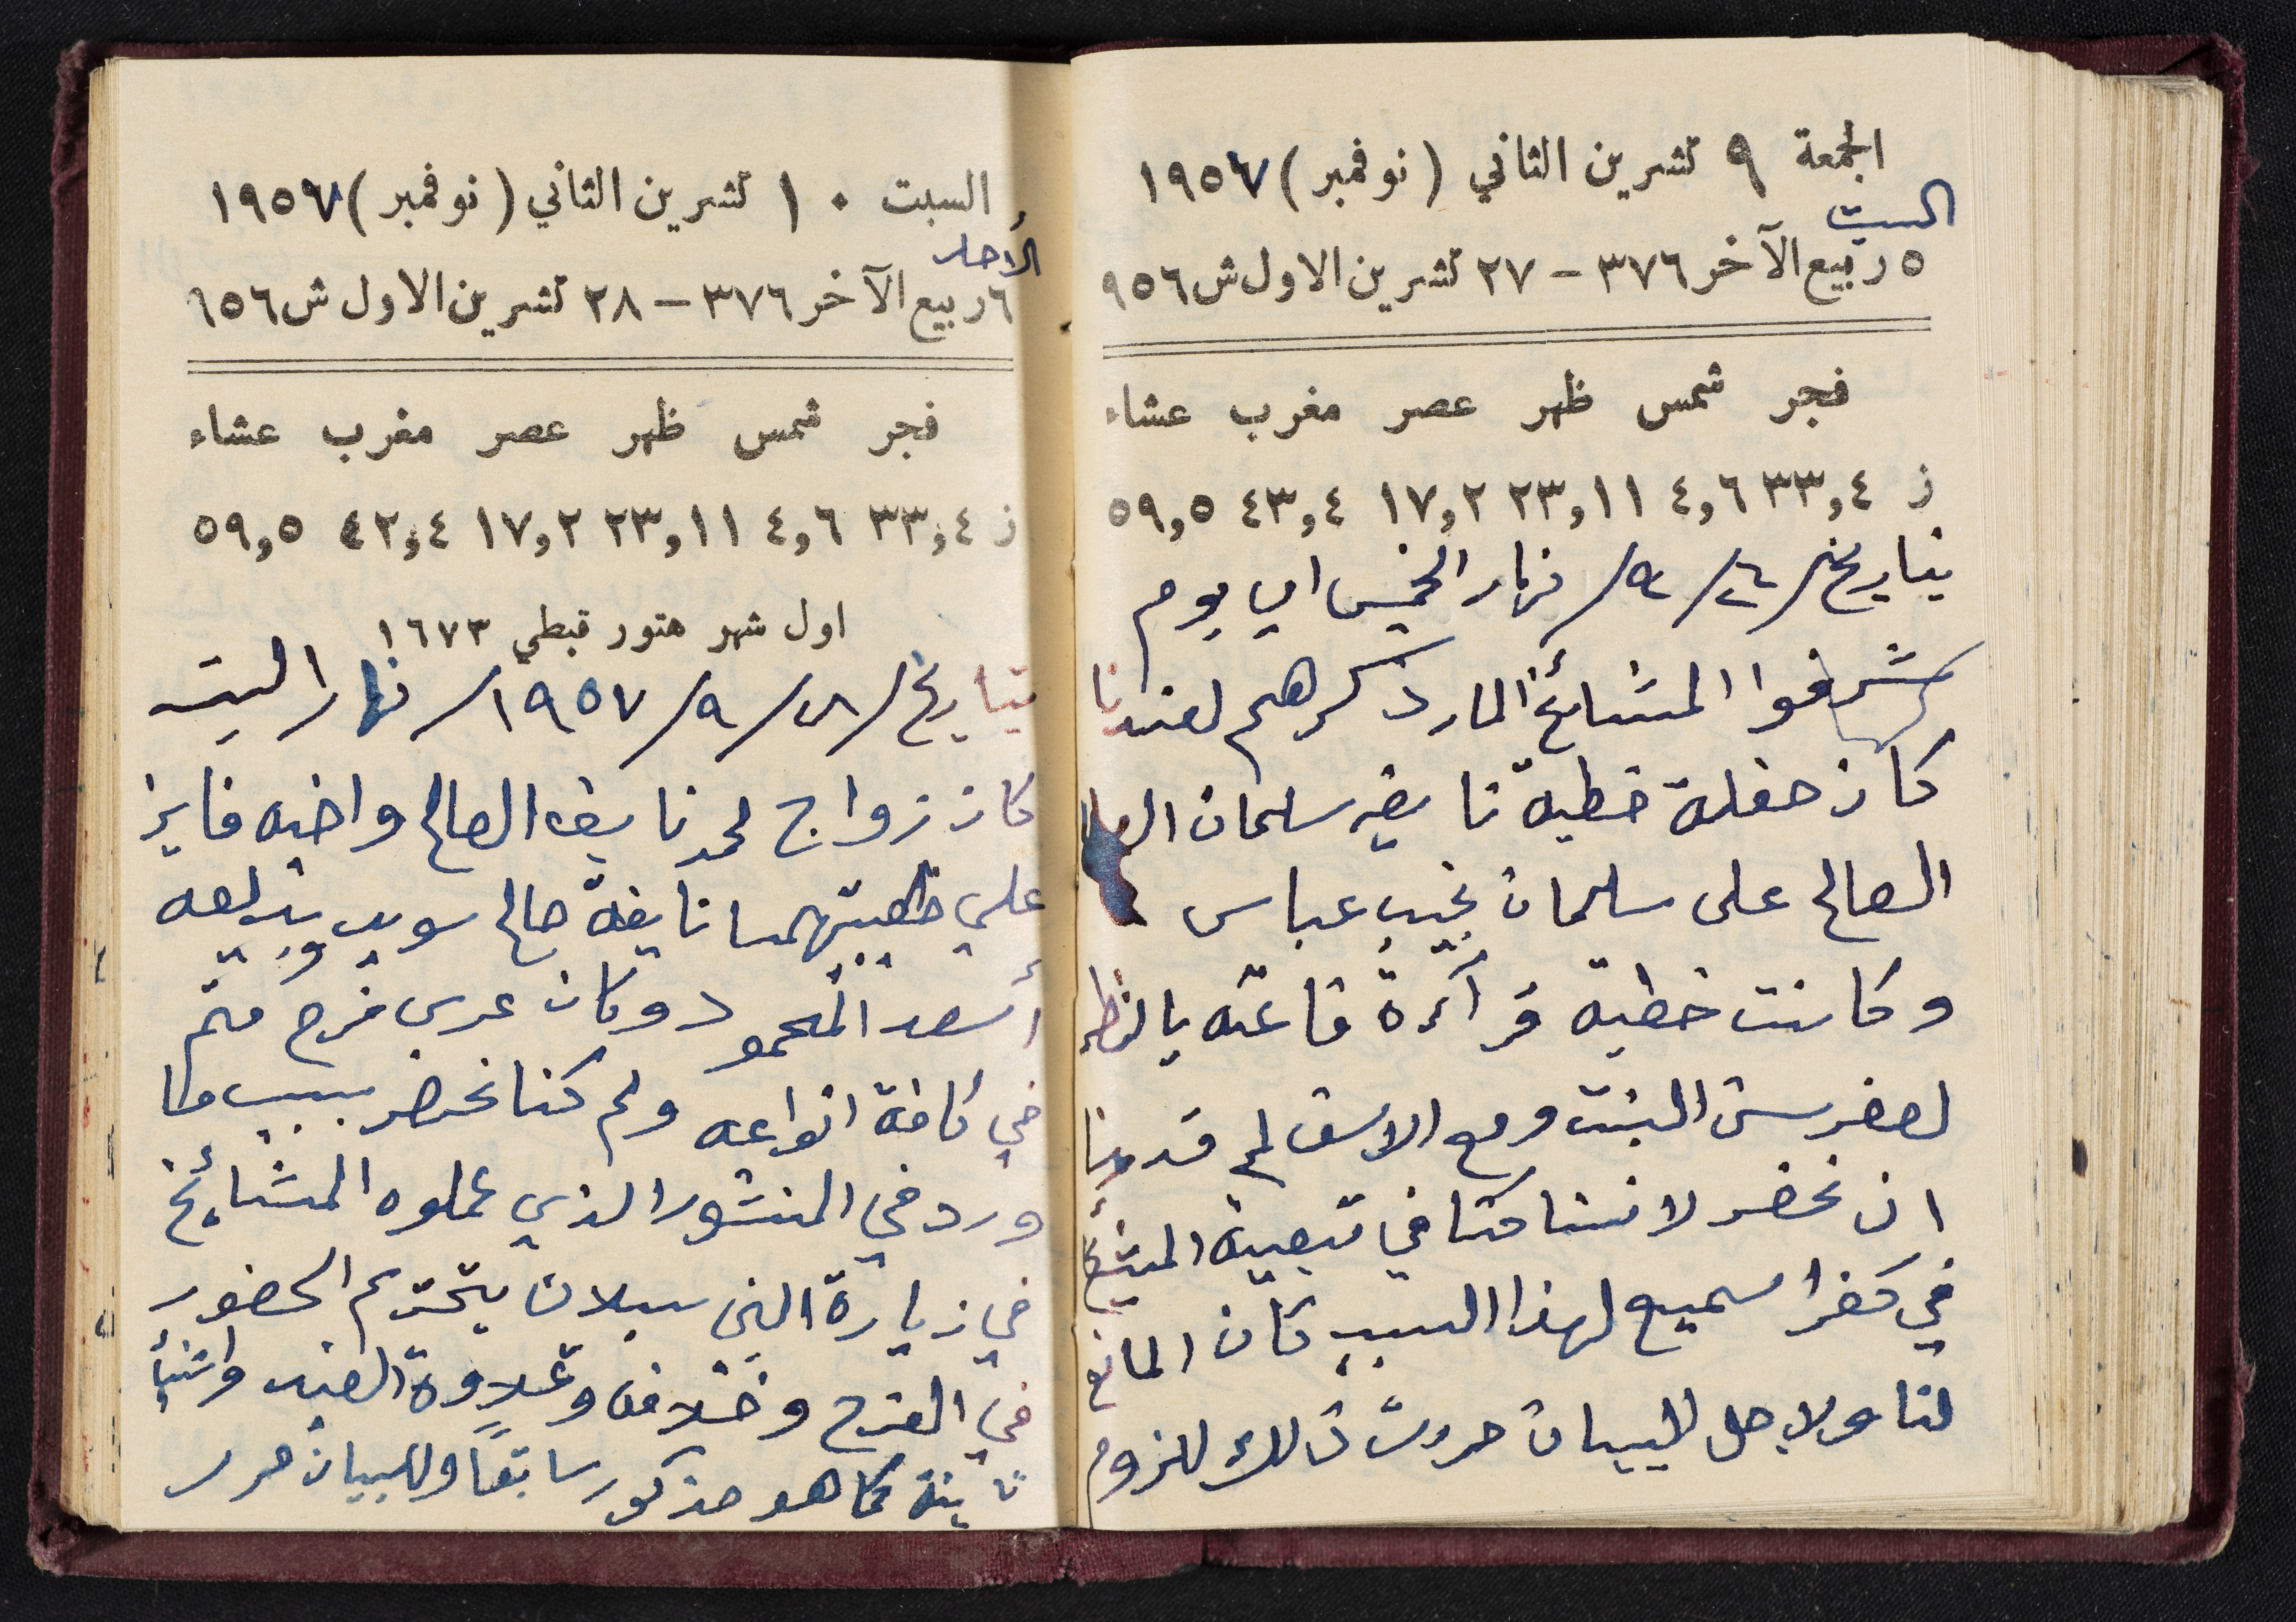 الجمعة ٩ تشرين الثاني (نوفمبر) ١٩٥٧
السبت
٥ ربيع الآخر ٣٧٦ – ٢٧ تشرين الاول ش ٩٥٦
فجر شمس ظهر عصر مغرب عشاء
ز ٣٣,٤ ٤,٦ ٢٣,١١ ١٧,٢ ٤٣,٤ ٥٩,٥
بتاريخ /٢٦ /٩/ نهار الخميس اي يوم
شرفوا المشائخ المار ذكرهم لعندنا
كان حفلة خطبة نايفه سلمان
الصالح على سلمان نجيب عباس
وكانت خطبة قرآءة فاتحه بالنظر
لصغر سن البنت ومع الاسف لم قدرنا
ان نحضر لاننا كنا في تبعية المشائخ
في كفر اسميع لهذا السبب كان المانع
لنا ولاجل البيان حررت ذلك للزوم
السبت ١٠ تشرين الثاني (نوفمبر) ١٩٥٧
الأحد
٦ ربيع الآخر ٣٧٦ – ٢٨ تشرين الاول ش ٦٥٦
فجر شمس ظهر عصر مغرب عشاء
ز ٣٣,٤ ٤,٦ ٢٣,١١ ١٧,٢ ٤٢,٤ ٥٩,٥
اول شهر هتور قبطي ١٦٧٣
بتاريخ /٢٨ /٩/ ١٩٥٧/ نهار السبت
كان زواج محمد نايف الصالح واخيه فايز
علي خطيبتهما نايفة صالح سويد وبديعه
أسعد المحمود وكان عرس فرح
في كافة انواعه ولم كنا نحضر بسبب ما
ورد في المنشور الذي عملوه المشائخ
في زيارة النبي سبلان بتحتريم الحضور
في الفرح وخلافه وعلاوة
ثانية كما هو مذكور سابقاً وللبيان حرر